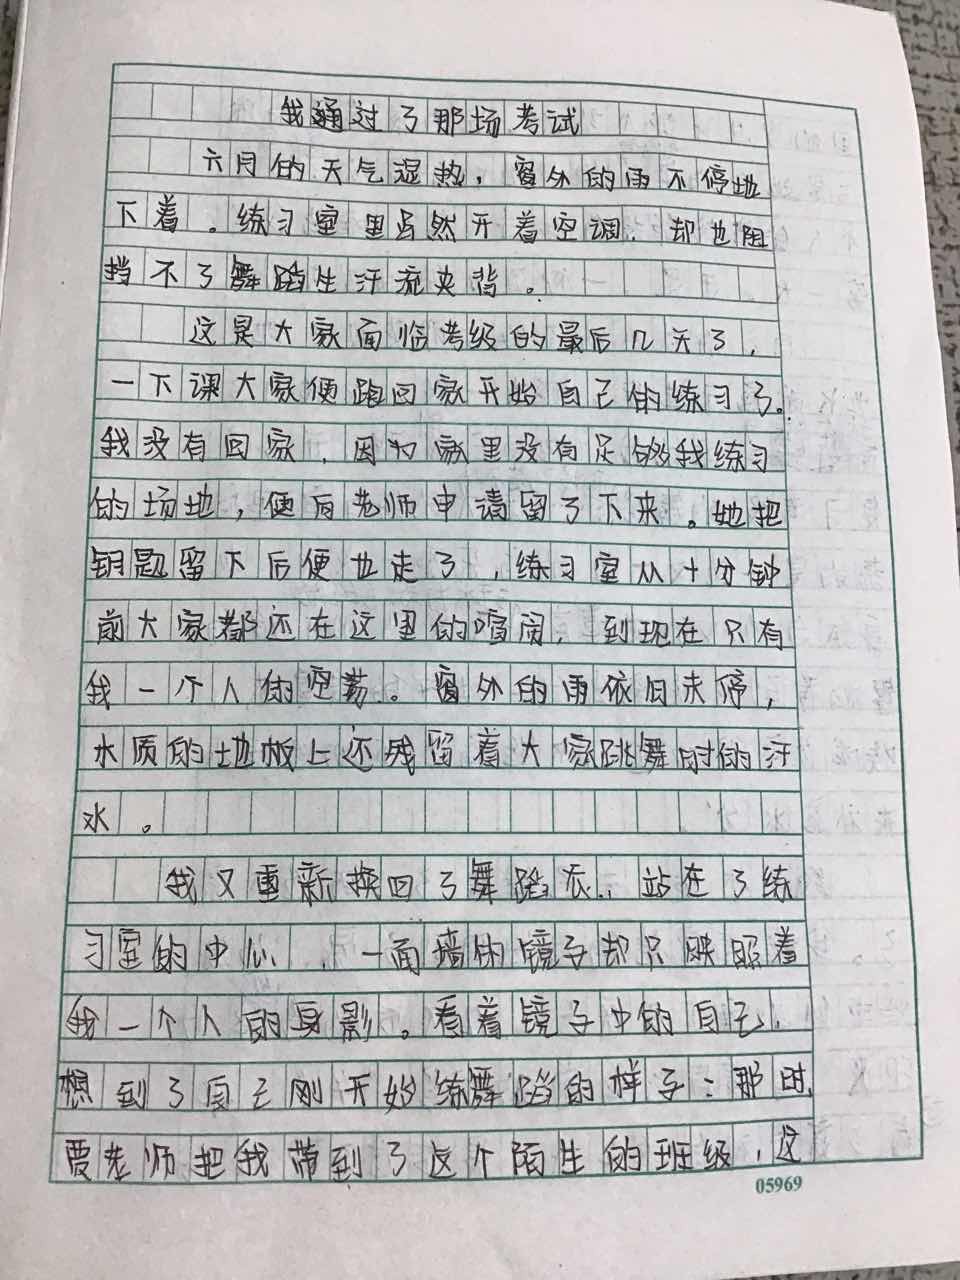 我通过了那场考试
六月的天气湿热，窗外的雨不停地
下着。练习室里虽然开着空调，却也阻
挡不了舞蹈生汗流夹背。
这是大家面临考级的最后几天了，
一下课大家便跑回家开始自己的练习了。
我没有回家，因为家里没有足够我练习
的场地，便向老师申请留了下来。她把
钥匙留下后便也走了，练习室从十分钟
前大家都还在这里的喧闹，到现在只有
我一个人的空荡。窗外的雨依旧未停，
木质的地板上还残留着大家跳舞时的汗
水。
我又重新换回了舞蹈衣，站在了练
习室的中心，一面墙的镜子却只映照着
我一个人的身影。看着镜子中的自己，
想到了自己刚开始练舞蹈的样子：那时，
贾老师把我带到了这个陌生的班级，这
05969